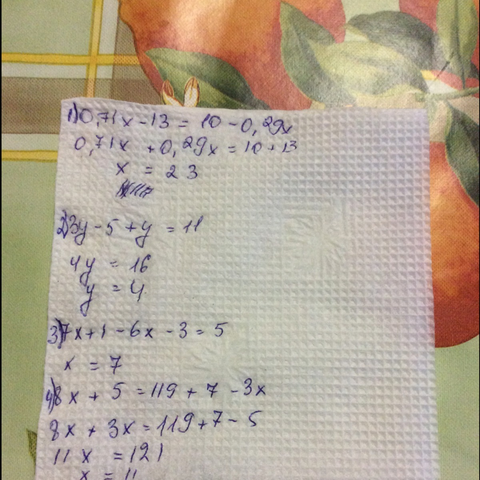 1) 0,71x - 13 = 10 - 0,29x
0,71x + 0,29x = 10 + 13
x = 23
2) 3y - 5 + y = 11
4y = 16
y = 4
3) 7x + 1 - 6x - 3 = 5
x = 7
4) 8x + 5 = 119 + 7 - 3x
8x + 3x = 119 + 7 - 5
11x = 121
x = 11